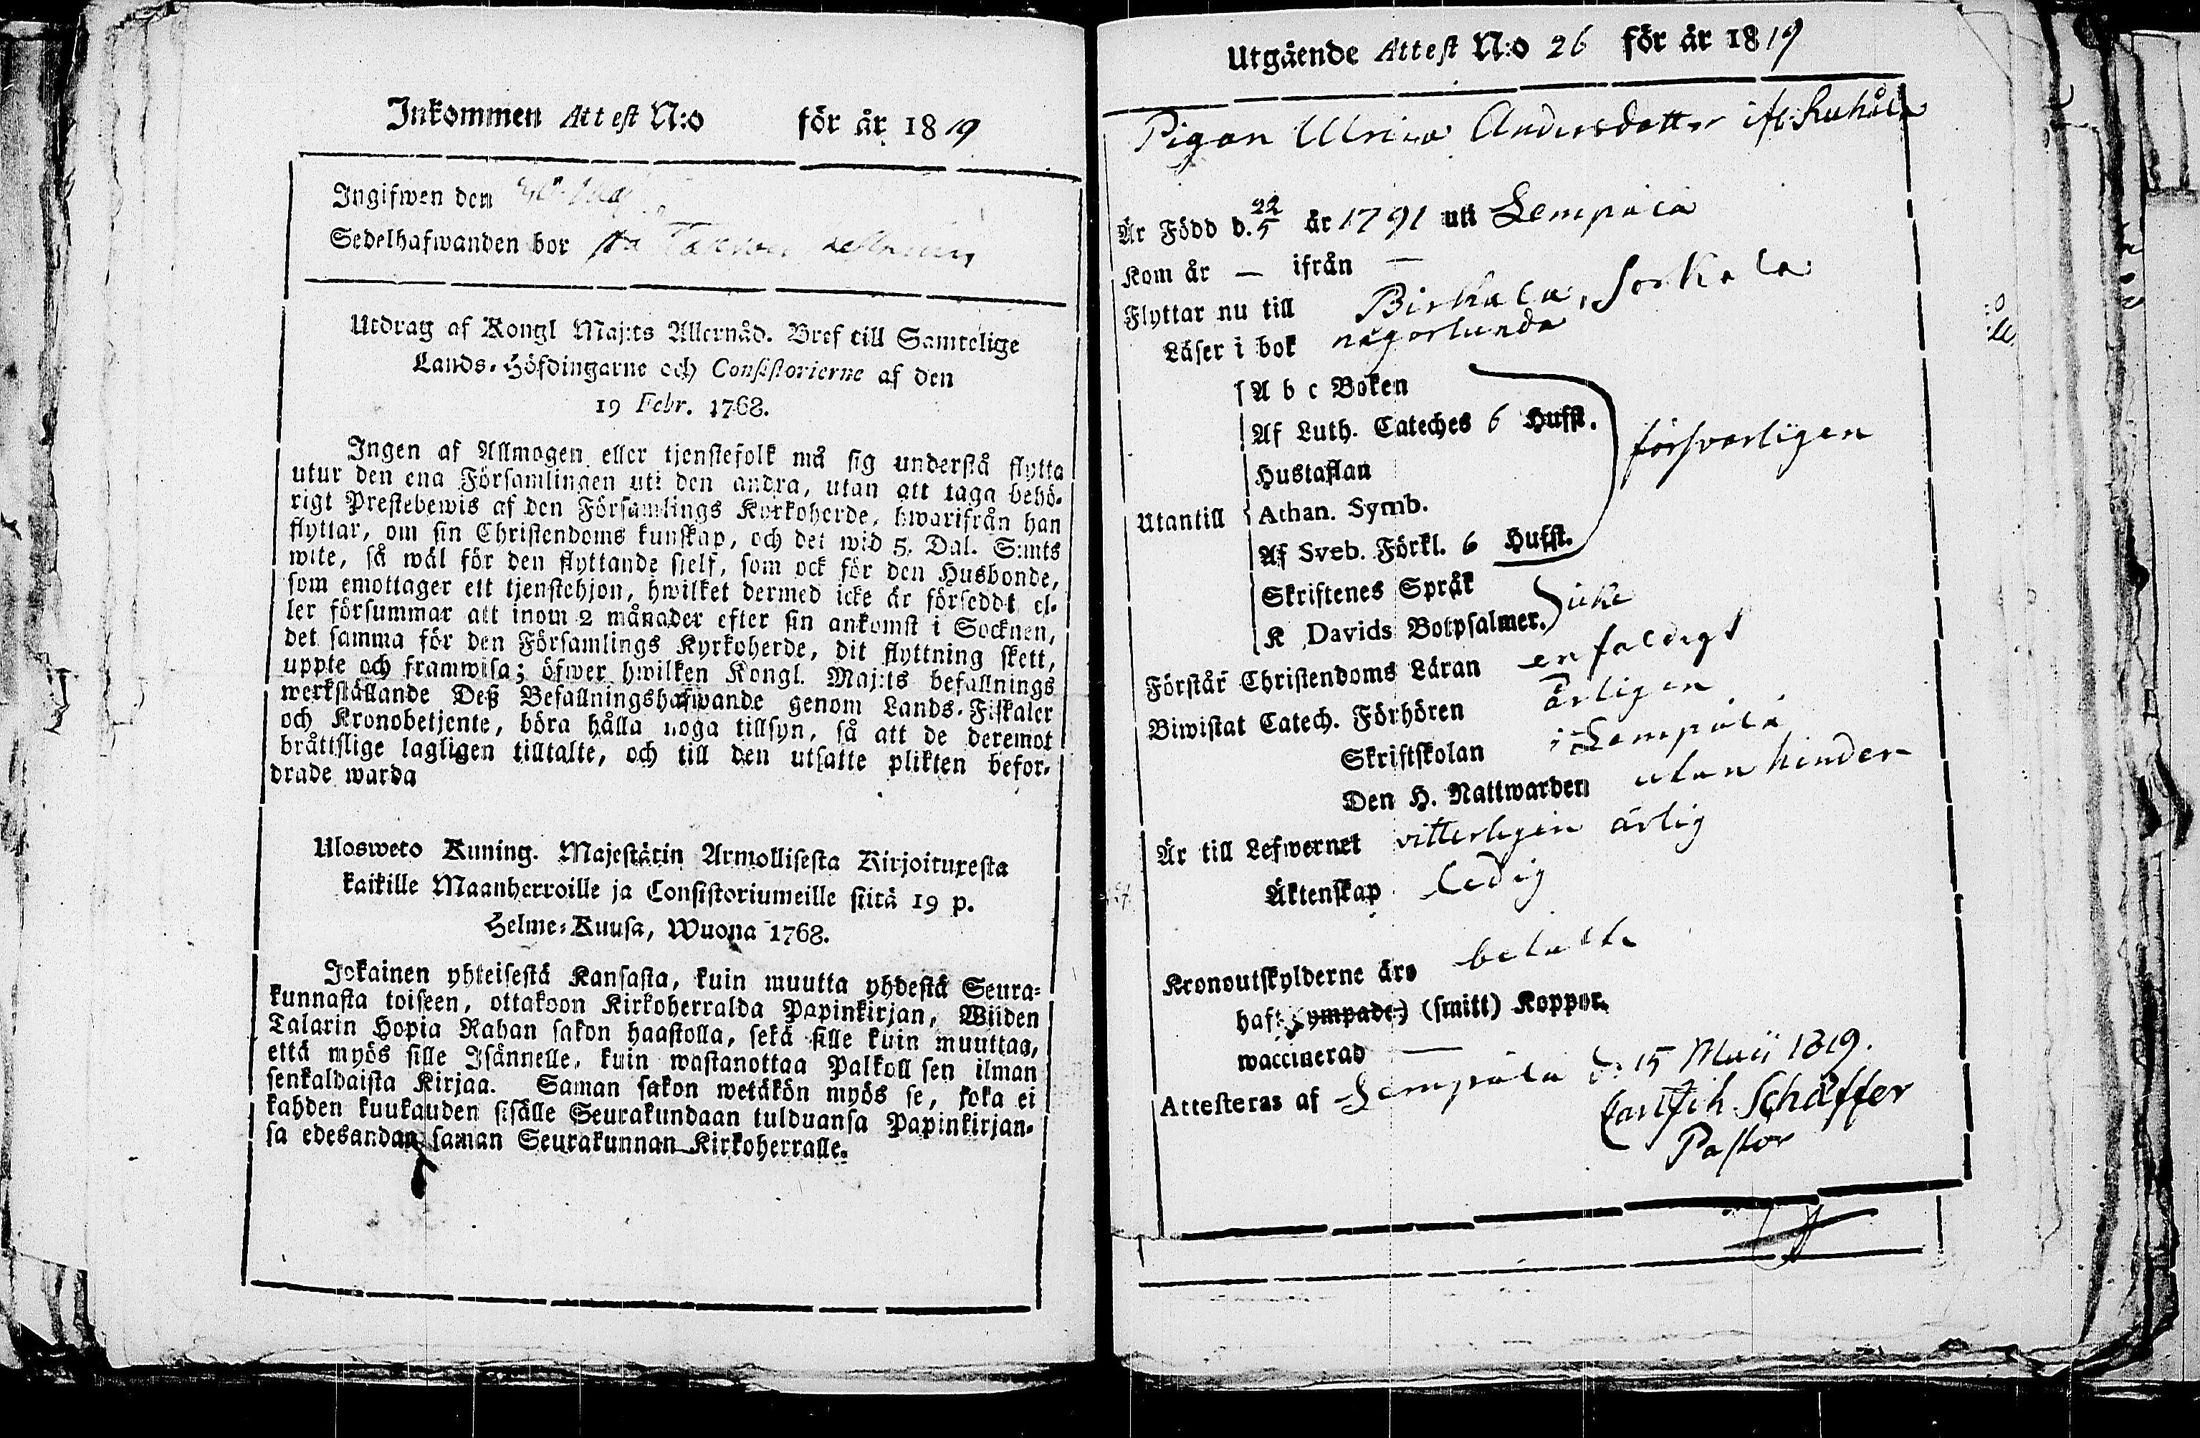 Inkommen Attest N:o för år 1819
Ingifwen den
Sedelhafwanden bor
Utdrag af Kongl Maj:ts Allernåd. Bref till Samtelige
Lands-Höfdingarne och Consistorierne af den
19 Febr. 1768.
Ingen af Allmogen eller tjenstefolk må sig understå flytta
utur den ena Församlingen uti den andra, utan att taga behö-
rigt Prestebewis af den Församlings Kyrkoherde, hwarifrån han
flyttar, om sin Christendoms kunskap, och det wid 5. Dal. S:mts
wite, så wäl för den flyttande sjelf, som ock för den Husbonde,
som emottager ett tjenstehjon, hwilket dermed icke är försedt el-
ler försummar att inom 2 månader efter sin ankomst i Socknen,
det samma för den Församlings Kyrkoherde, dit flyttning skett,
uppte och framwisa; öfwer hwilken Kongl. Maj:ts befallnings
werkställande Deß Befallningshafwande genom Lands-Fiskaler
och Kronobetjente, böra hålla noga tillsyn, så att de deremot
bråttslige lagligen tilltalte, och till den utsatte plikten befor-
drade warda
Ulosweto Kuning. Majestätin Armollisesta Kirjoituxesta
kaikille Maanherroille ja Consistoriumeille siitä 19 p.
Helme-Kuusa, Wuona 1768.
Jokainen yhteisestä Kansasta, kuin muutta yhdestä Seura-
kunnasta toiseen, ottakoon Kirkoherralda Papinkirjan, Wiiden
Talarin Hopia Rahan sakon haastolla, sekä sille kuin muuttaa,
että myös sille Isännelle, kuin wastanottaa Palkollisen ilman
senkaldaista Kirjaa. Saman sakon wetäkön myös se, joka ei
kahden kuukauden sisälle Seurakundaan tulduansa Papinkirjan-
sa edesandan saman Seurakunnan Kirkoherralle.
Utgående Attest N:o 26 för år 1819
Pigan Ulrica Andersdotter
Är Född d. 22/5 år 1791 uti Lempäla
Kom år — ifrån —
Flyttar nu till Birkala, Sorkala
Läser i bok någorlunda
A b c Boken
Af Luth. Cateches 6 Hufst.
Hustaflan
försvarligen
Utantill Athan. Symb.
Af Sveb. Förkl. 6 Hufst.
Skriftenes Språk
K Davids Botpsalmer. icke
Förstår Christendoms Läran enfaldigt
Biwistat Catech. Förhören årligen
Skriftskolan i Lempälä
Den H. Nattwarden utan hinder
Är till Lefwernet vitterligen ärlig
Äktenskap ledig
Kronoutskylderne äro betalte
haft (ympade) (smitt) Koppor.
waccinerad —
Attesteras af Lempäla d. 15 Maii 1819.
Schäffer
Pastor